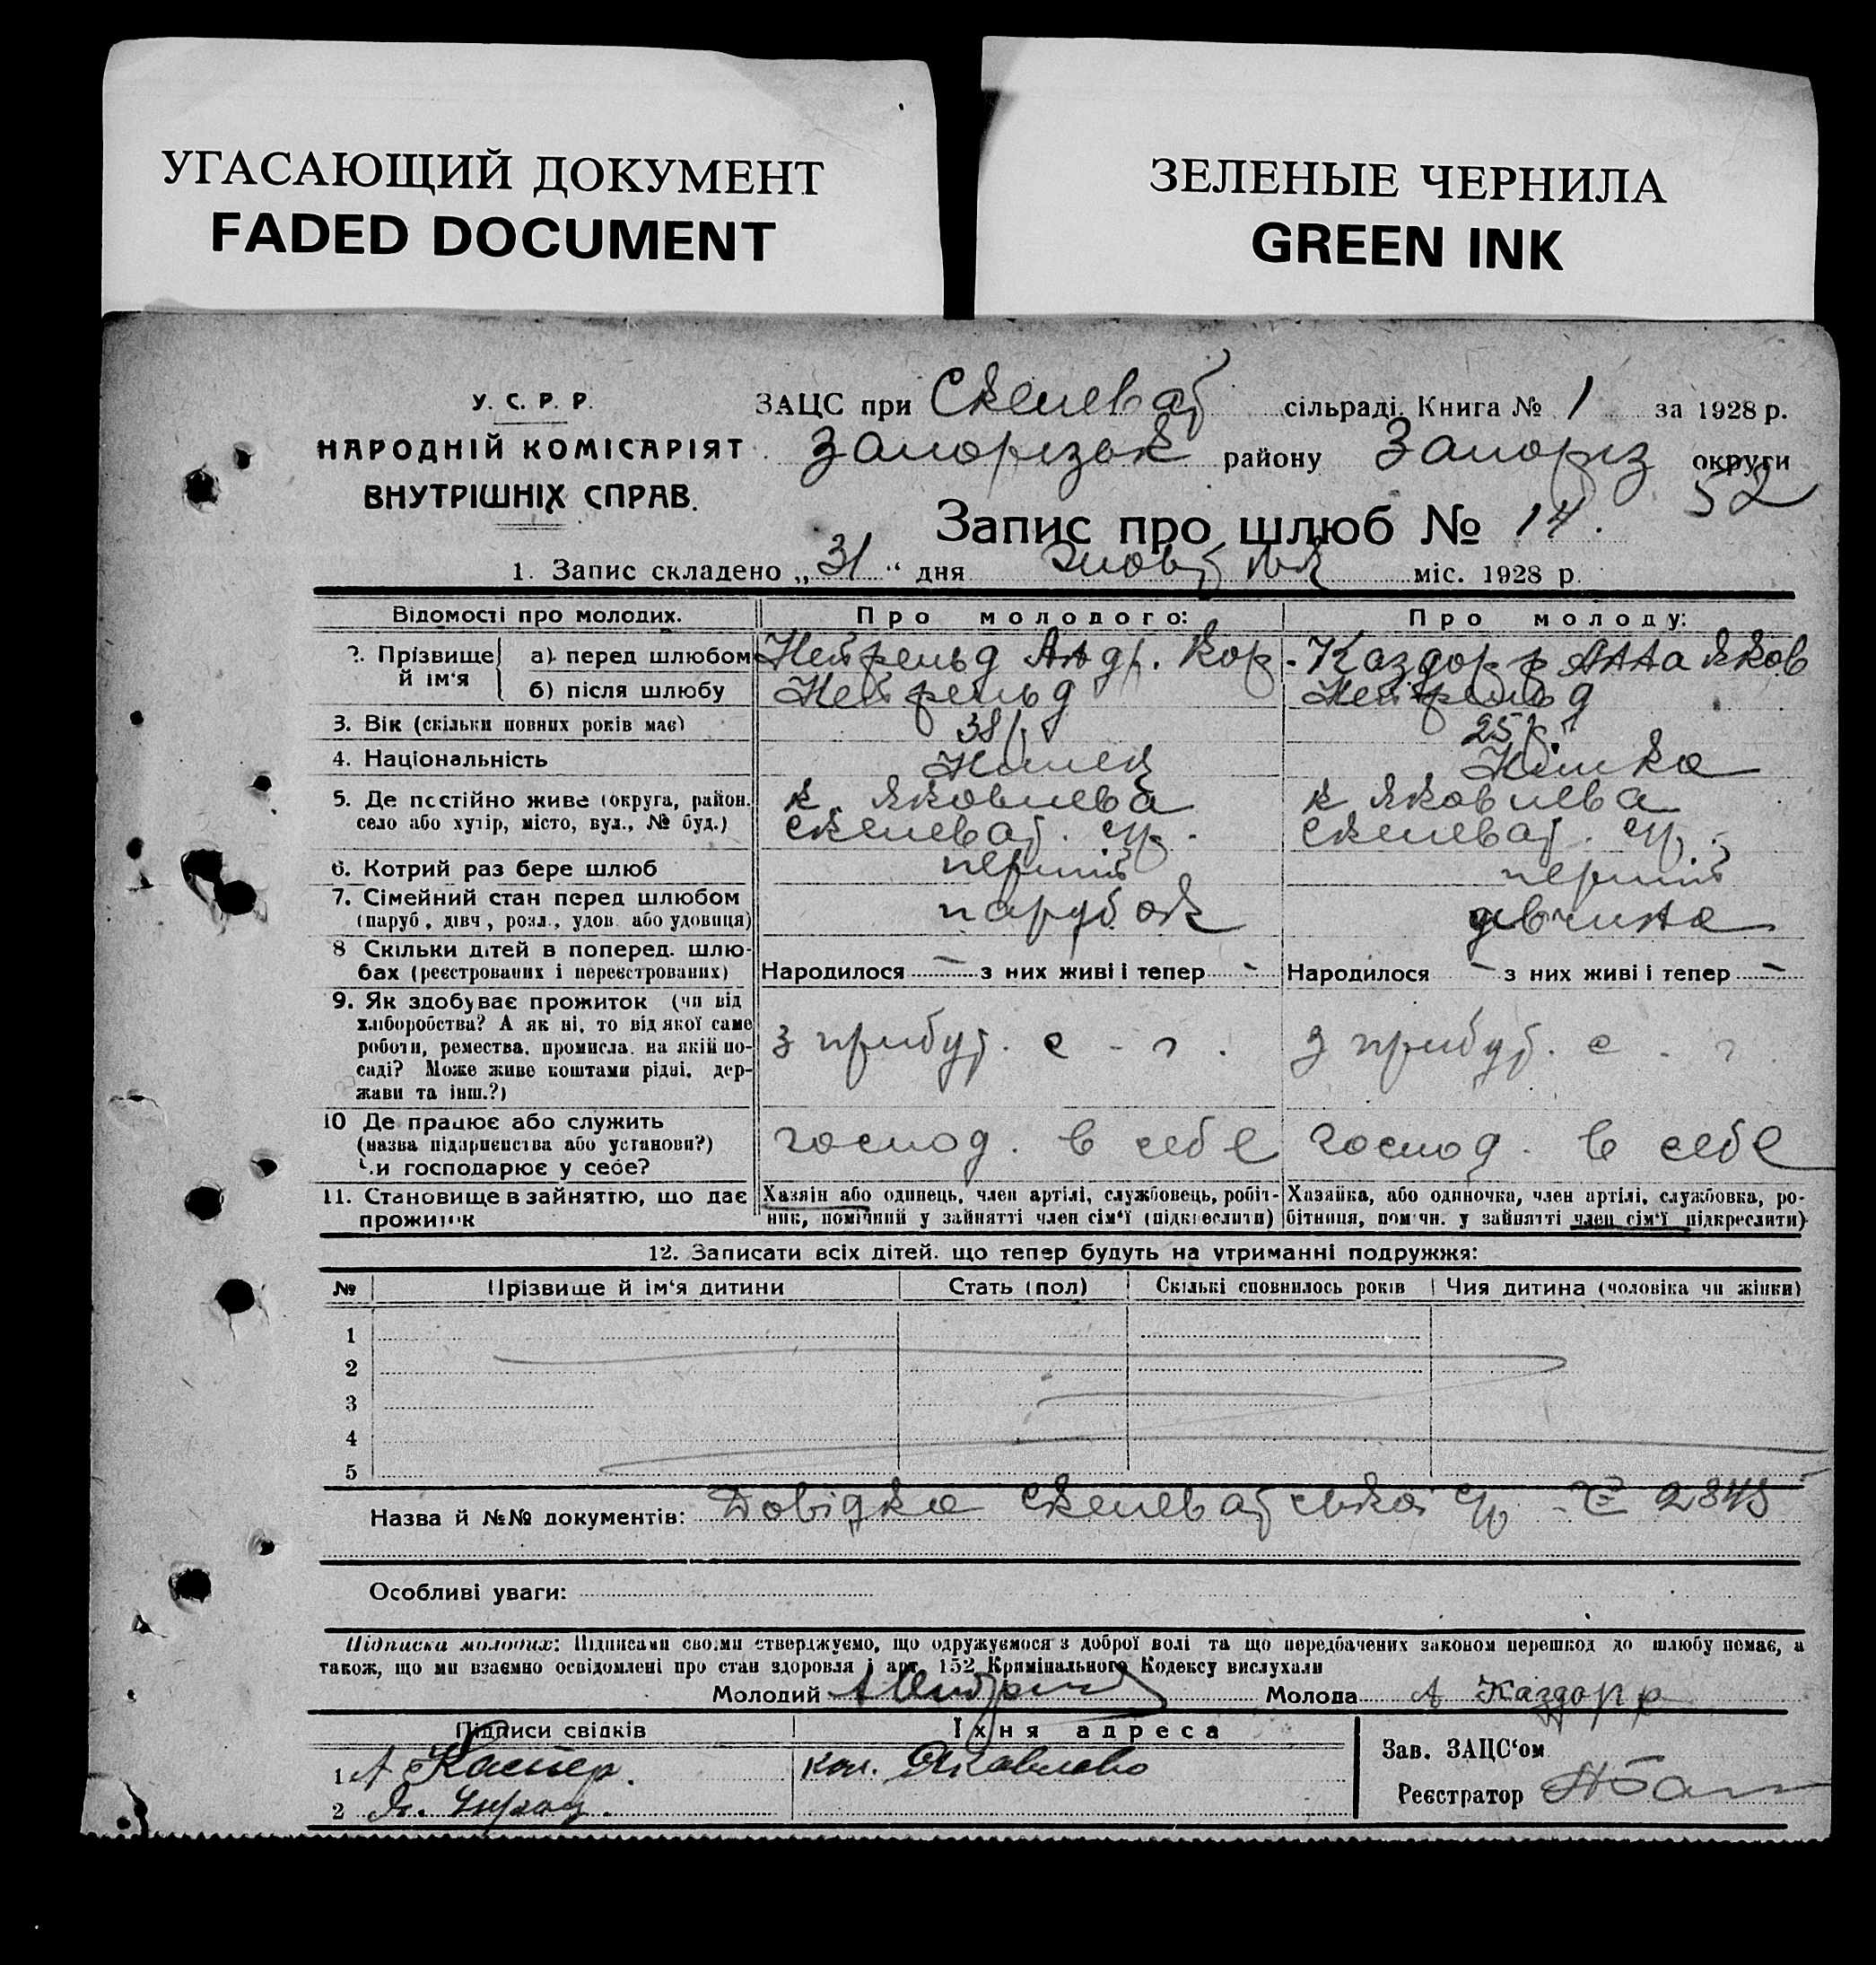 УГАСАЮЩИЙ ДОКУМЕНТ
FADED DOCUMENT
ЗЕЛЕНЫЕ ЧЕРНИЛА
GREEN INK
У. С. Р. Р.
НАРОДНІЙ КОМІСАРІЯТ
ВНУТРІШНІХ СПРАВ.
ЗАЦС при Скелеват сільраді. Книга № 1 за 1928 р.
Запорізьк району Запоріз округи
52
Запис про шлюб № 14.
1. Запис складено „31“ дня міс. 1928 р.
Відомості про молодих. Про молодого: Про молоду:
2. Прізвище й ім'я
а) перед шлюбом Нейфельд Андр. Кор. Каздорф Анна Яков
б) після шлюбу Нейфельд Нейфельд
3. Вік (скільки повних років має) 38 р. 25 р.
4. Національність Німець Німка
5. Де постійно живе (округа, район, к. Яковлева к Яковлева
село або хутір, місто, вул., № буд.) Скелеват. с/р. Скелеват. с/р.
6. Котрий раз бере шлюб перший перший
7. Сімейний стан перед шлюбом парубок дівчина
(паруб., дівч., розл., удов. або удовиця)
8 Скільки дітей в поперед. шлю-
бах (реєстрованих і нереєстрованих) Народилося - з них живі і тепер - Народилося - з них живі і тепер -
9. Як здобуває прожиток (чи від
хліборобства? А як ні, то від якої саме з прибут. с - г. з прибут. с. г.
роботи, ремества, промисла, на якій по-
саді? Може живе коштами рідні, дер-
жави та інш.?)
10 Де працює або служить
(назва підприємства або установи?) господ. в себе господ. в себе
Чи господарює у себе?
11. Становище в зайняттю, що дає Хазяїн або одинець, член артілі, службовець, робіт- Хазяйка, або одиночка, член артілі, службовка, ро-
прожиток ник, помічний у зайнятті член сім'ї (підкреслити) бітниця, помічн. у зайнятті член сім'ї підкреслити)
12. Записати всіх дітей, що тепер будуть на утриманні подружжя:
№ Прізвище й ім'я дитини Стать (пол) Скількі сповнилось років Чия дитина (чоловіка чи жінки)
1
2
3
4
5
Назва й №№ документів: Довідка Скелеватської с/р № 2845
Особливі уваги:
Підписка молодих: Підписами своїми стверджуємо, що одружуємося з доброї волі та що передбачених законом перешкод до шлюбу немає, а
також, що ми взаємно освідомлені про стан здоровля і арт. 152 Кримінального Кодексу вислухали
Молодий Молода А Каздорф
Підписи свідків Їхня адреса
1 А Каспер. кол. Яковлево
2
Зав. ЗАЦС'ом
Реєстратор